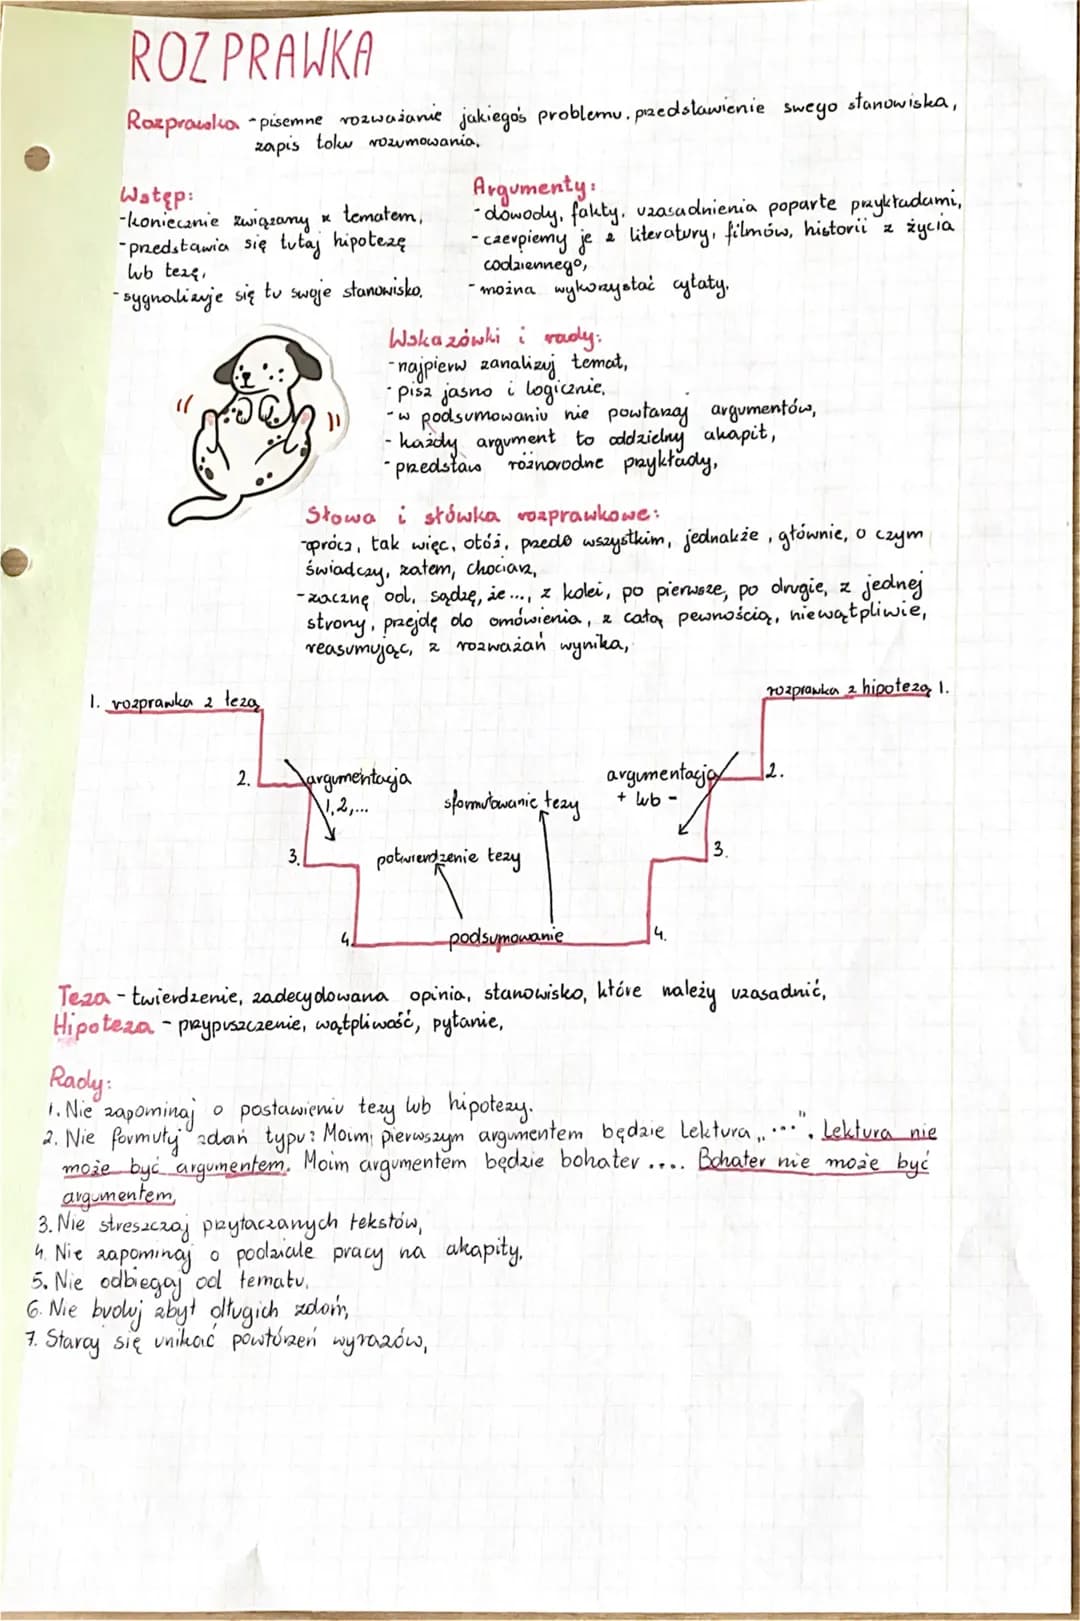 ROZPRAWKA
Rozprawka - pisemne rozważanie jakiegoś problemu, przedstawienie swego stanowiska,
zapis toku rozumowania.
Wstęp:
- koniecznie związany z tematem,
- przedstawia się tutaj hipotezę
lub tezę,
- sygnalizuje się tu swoje stanowisko.
Argumenty:
- dowody, fakty, uzasadnienia poparte przykładami,
- czerpiemy je z literatury, filmów, historii z życia
codziennego,
- można wykorzystać cytaty.
Wskazówki i rady:
- najpierw zanalizuj temat,
- pisz jasno i logicznie,
- w podsumowaniu nie powtarzaj argumentów,
- każdy argument to oddzielny akapit,
- przedstaw różnorodne przykłady,
Słowa i słówka rozprawkowe:
- oprócz, tak więc, otóż, przede wszystkim, jednakże, głównie, o czym
świadczy, zatem, chociaż,
- zacznę od, sądzę, że..., z kolei, po pierwsze, po drugie, z jednej
strony, przejdę do omówienia, z całą pewnością, niewątpliwie,
reasumując, z rozważań wynika,
1. rozprawka z tezą
rozprawka z hipotezą 1.
2.
argumentacja
1,2,...
sformułowanie tezy
argumentacja
+ lub -
2.
3.
potwierdzenie tezy
3.
4.
podsumowanie
4.
Teza - twierdzenie, zadecydowana opinia, stanowisko, które należy uzasadnić,
Hipoteza - przypuszczenie, wątpliwość, pytanie,
Rady:
1. Nie zapominaj o postawieniu tezy lub hipotezy.
2. Nie formułuj zdań typu: Moim pierwszym argumentem będzie Lektura „...". Lektura nie
może być argumentem. Moim argumentem będzie bohater .... Bohater nie może być
argumentem,
3. Nie streszczaj przytaczanych tekstów,
4. Nie zapominaj o podziale pracy na akapity,
5. Nie odbiegaj od tematu,
6. Nie buduj zbyt długich zdań,
7. Staraj się unikać powtórzeń wyrazów,